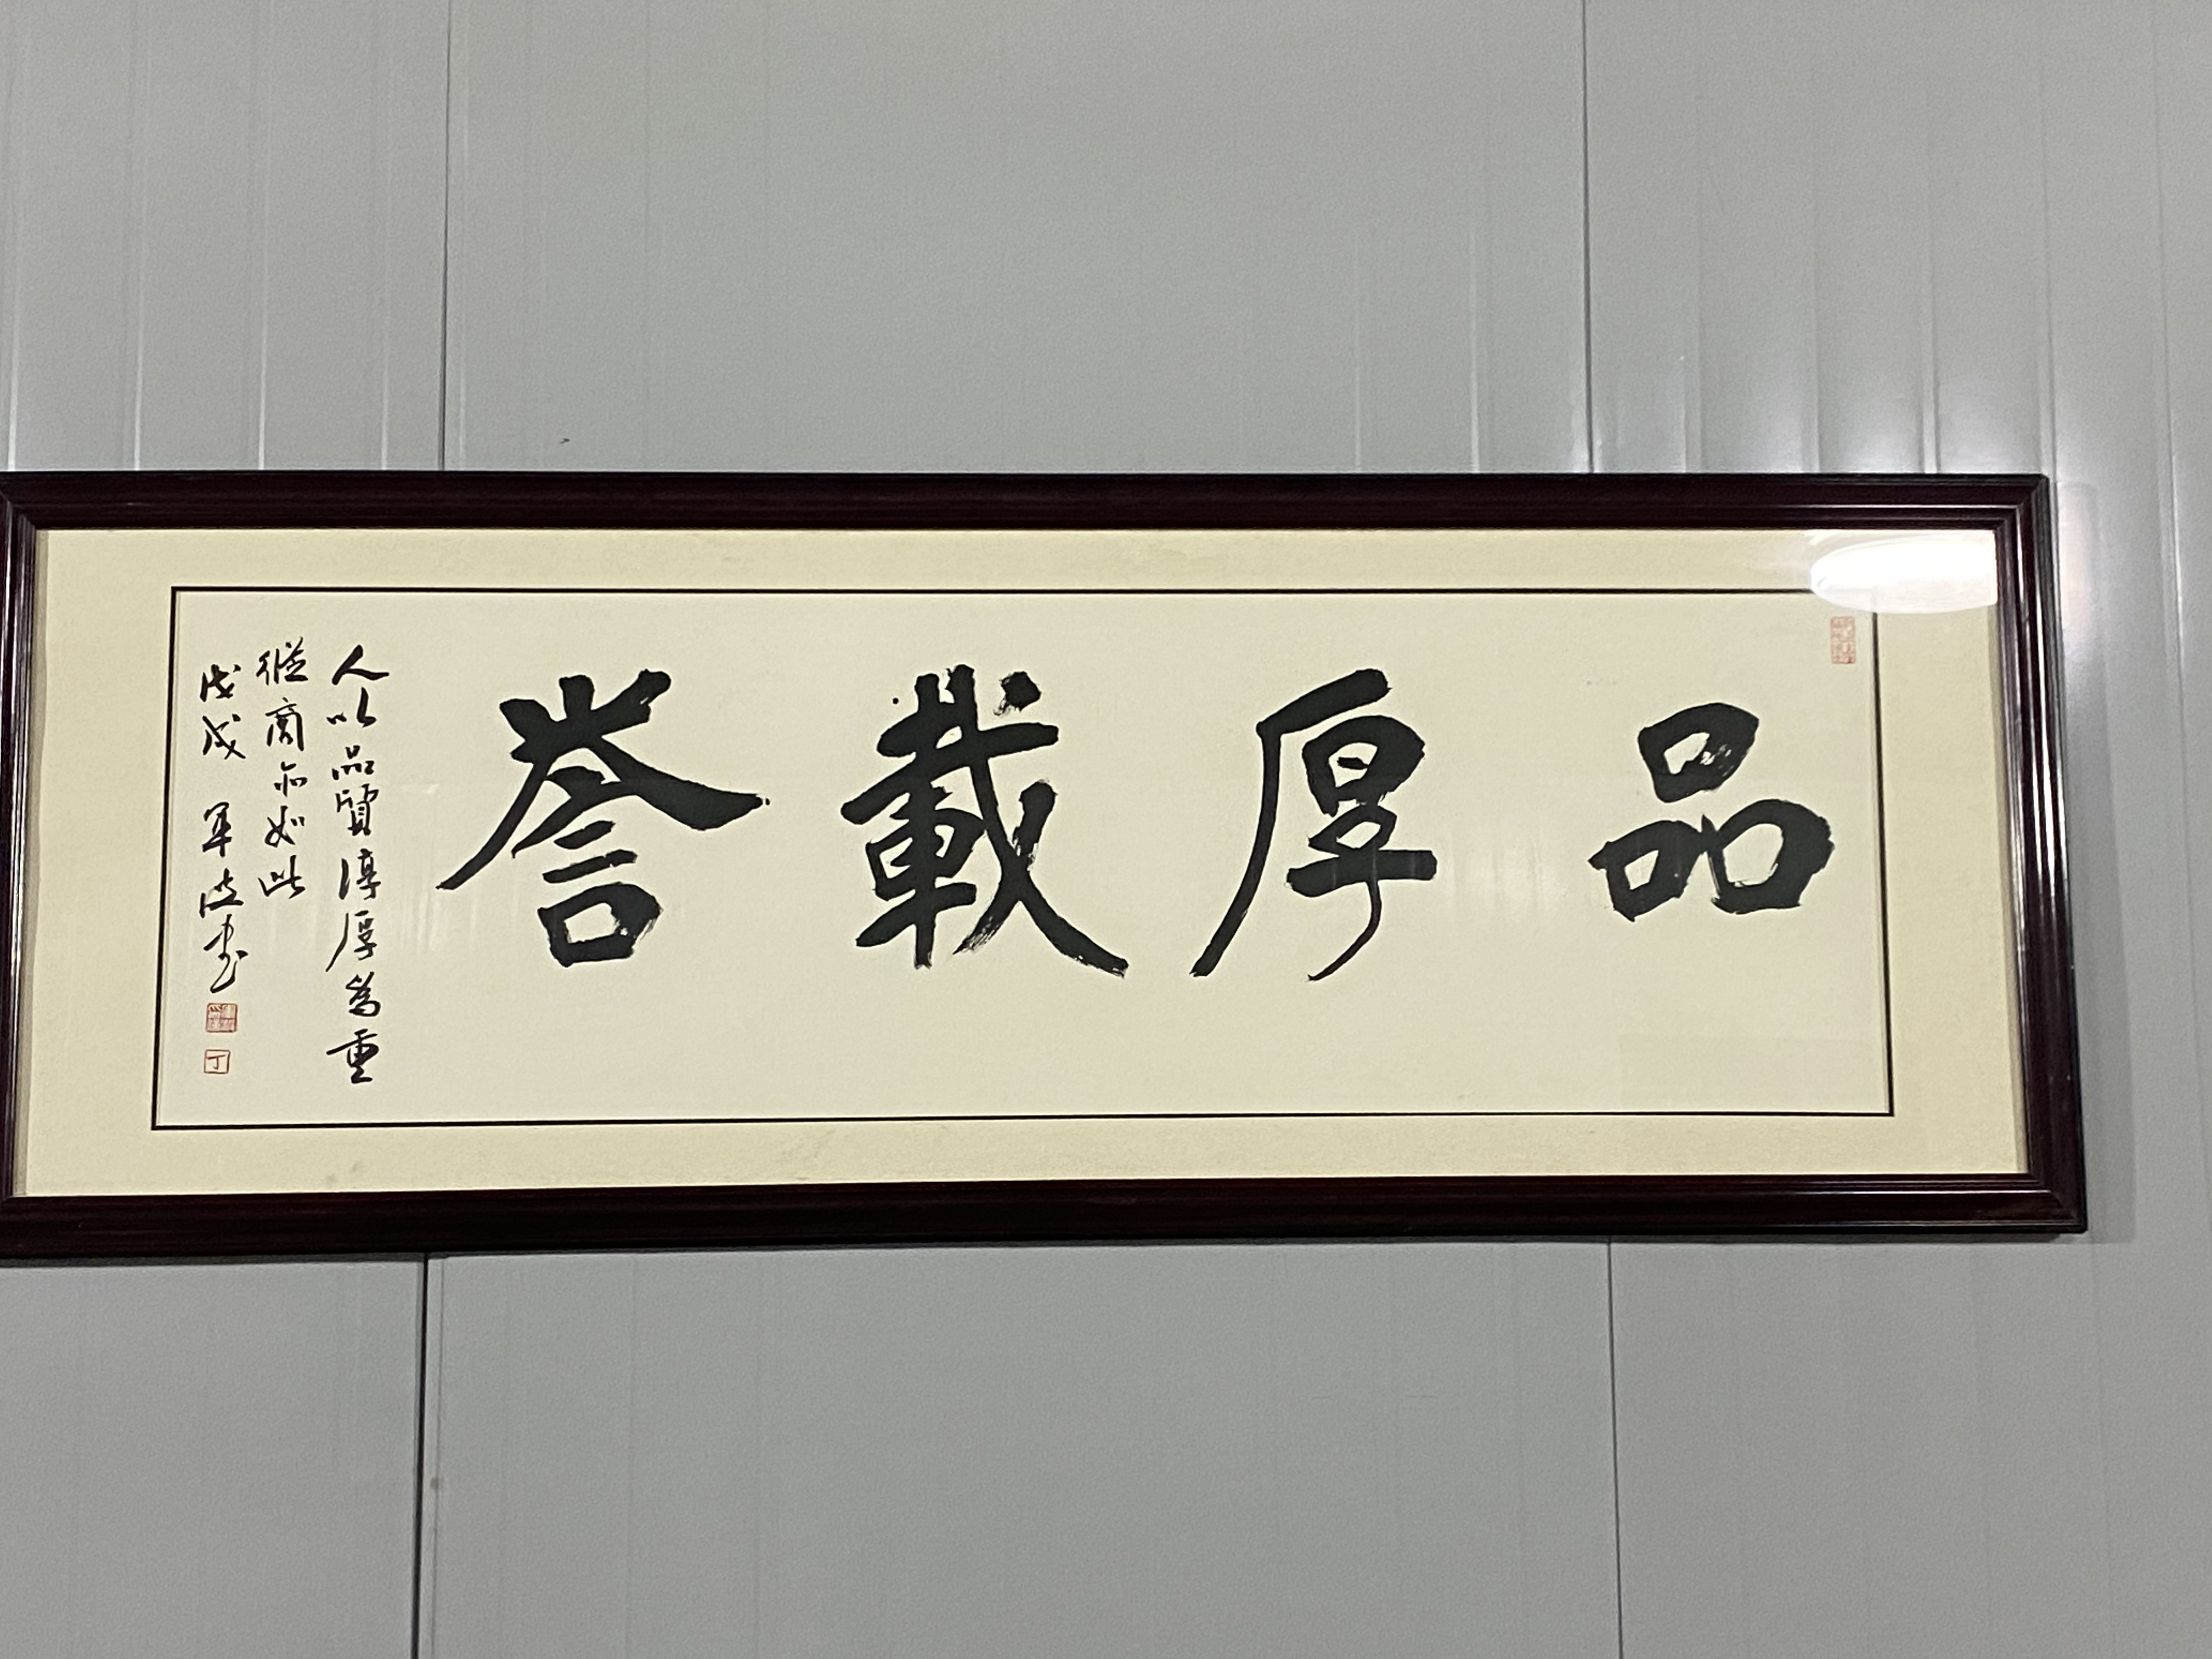 品厚載誉
人以品質淳厚為重
從商亦如此
戊戌 軍波書
丁